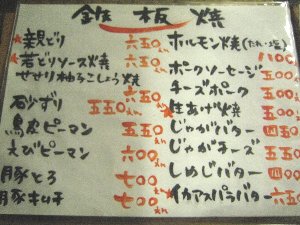 鉄板焼
★親どり 六五〇えん
★若どりソース焼 六五〇
せせり柚子こしょう焼 六五〇
砂ずり 五五〇えん
鳥皮ピーマン 五五〇えん
えびピーマン 六〇〇えん
豚とろ 七〇〇えん
豚キムチ 七〇〇えん
ホルモン焼(たれ・塩) 1100
ポークソーセージ 五五〇
チーズポーク 五五〇
★生あげ焼 五五〇
じゃがバター 四五〇
じゃがチーズ 五五〇
しめじバター 四〇〇
★イカアスパラバター 六五